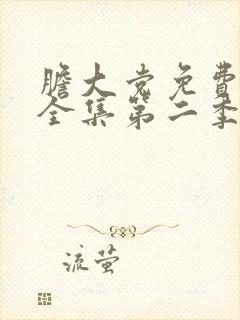 膽大党免費
全集第二季
流萤